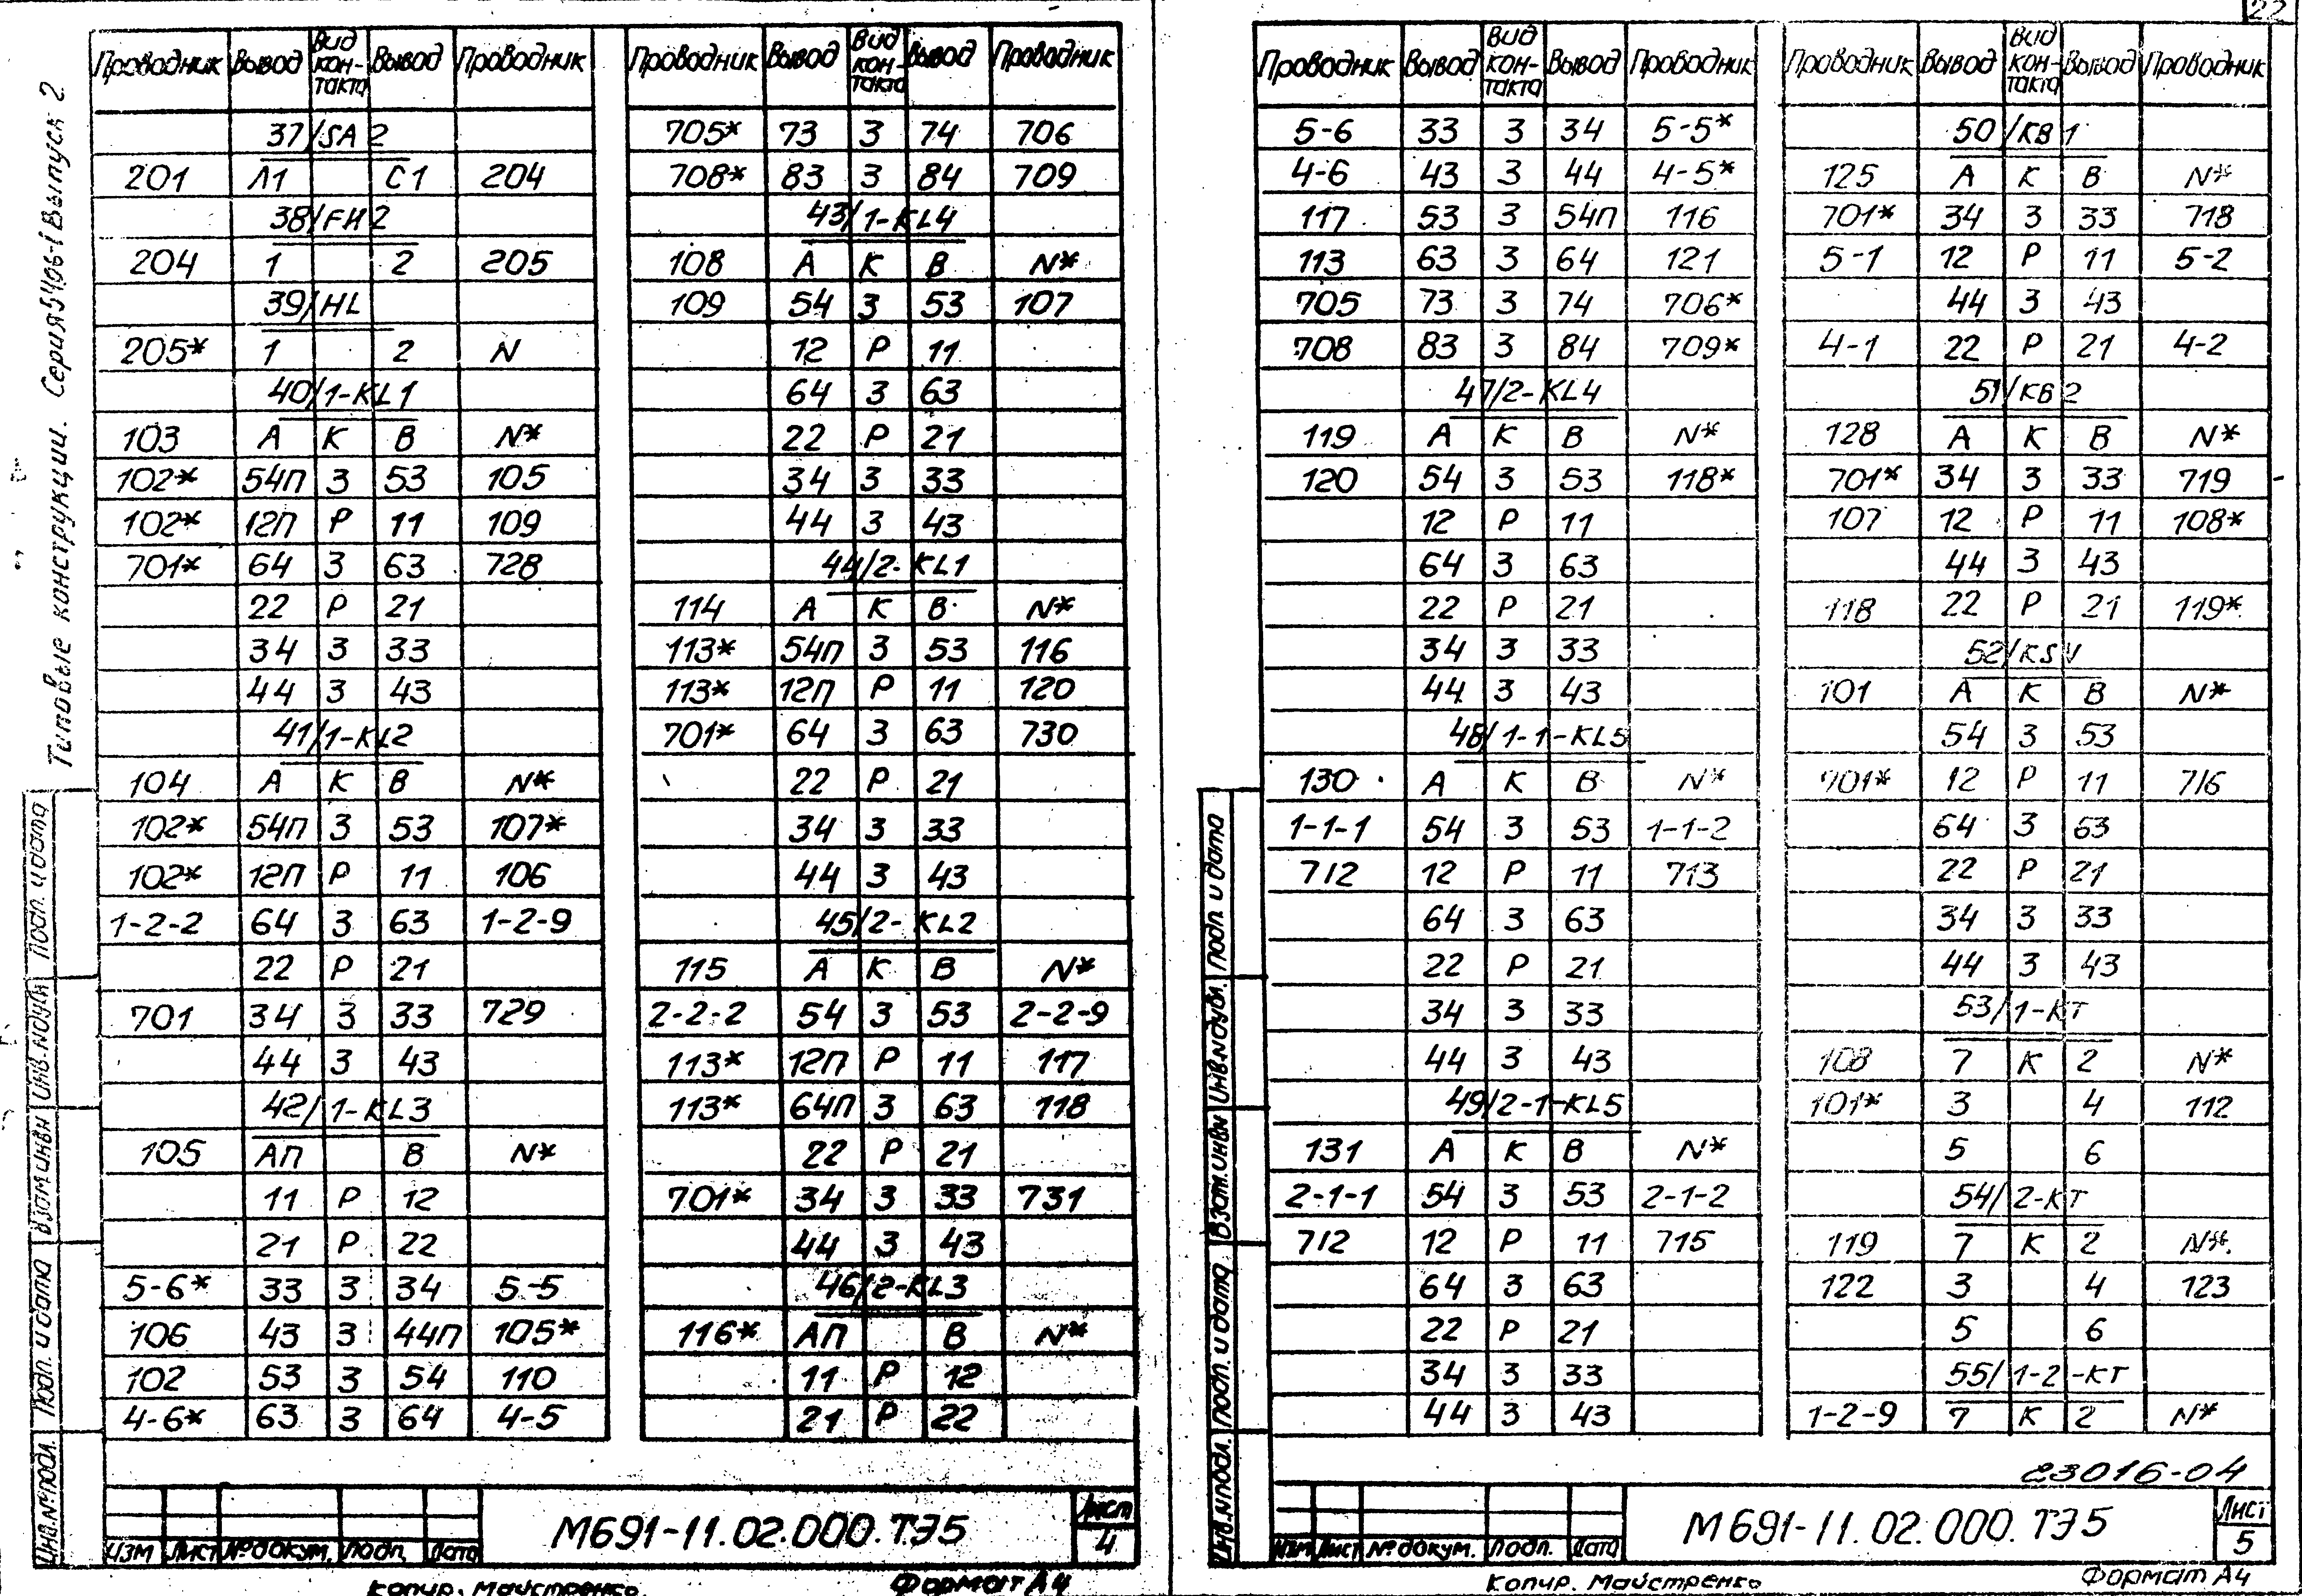 22
Типовые конструкции. Серия 5.406-1 Выпуск 2
Проводник Вывод Вид контакта Вывод Проводник
37/SA2
201 Л1 С1 204
38/FU2
204 1 2 205
39/HL
205* 1 2 N
40/1-KL1
103 А К В N*
102* 54П З 53 105
102* 12П Р 11 109
701* 64 З 63 728
22 Р 21
34 З 33
44 З 43
41/1-KL2
104 А К В N*
102* 54П З 53 107*
102* 12П Р 11 106
1-2-2 64 З 63 1-2-9
22 Р 21
701 34 З 33 729
44 З 43
42/1-KL3
105 АП В N*
11 Р 12
21 Р 22
5-6* 33 З 34 5-5
106 43 З 44П 105*
102 53 З 54 110
4-6* 63 З 64 4-5
Проводник Вывод Вид контакта Вывод Проводник
705* 73 З 74 706
708* 83 З 84 709
43/1-KL4
108 А К В N*
109 54 З 53 107
12 Р 11
64 З 63
22 Р 21
34 З 33
44 З 43
44/2-KL1
114 А К В N*
113* 54П З 53 116
113* 12П Р 11 120
701* 64 З 63 730
22 Р 21
34 З 33
44 З 43
45/2-KL2
115 А К В N*
2-2-2 54 З 53 2-2-9
113* 12П Р 11 117
113* 64П З 63 118
22 Р 21
701* 34 З 33 731
44 З 43
46/2-KL3
116* АП В N*
11 Р 12
21 Р 22
Инв.№подл. Подп. и дата Взам.инв№ Инв.№дубл. Подп. и дата
Изм Лист №докум. Подп. Дата
М691-11.02.000.ТЭ5
Лист
4
Копир. Майстренко
Формат А4
Проводник Вывод Вид кон-такта Вывод Проводник
5-6 33 З 34 5-5*
4-6 43 З 44 4-5*
117 53 З 54П 116
113 63 З 64 121
705 73 З 74 706*
708 83 З 84 709*
47/2-KL4
119 А К В N*
120 54 З 53 118*
12 Р 11
64 З 63
22 Р 21
34 З 33
44 З 43
48/1-1-KL5
130 А К В N*
1-1-1 54 З 53 1-1-2
712 12 Р 11 713
64 З 63
22 Р 21
34 З 33
44 З 43
49/2-1-KL5
131 А К В N*
2-1-1 54 З 53 2-1-2
712 12 Р 11 715
64 З 63
22 Р 21
34 З 33
44 З 43
Проводник Вывод Вид кон-такта Вывод Проводник
50/КВ1
125 А К В N*
701* 34 З 33 718
5-1 12 Р 11 5-2
44 З 43
4-1 22 Р 21 4-2
51/КВ2
128 А К В N*
701* 34 З 33 719
107 12 Р 11 108*
44 З 43
118 22 Р 21 119*
52/KSV
101 А К В N*
54 З 53
701* 12 Р 11 716
64 З 63
22 Р 21
34 З 33
44 З 43
53/1-КТ
108 7 К 2 N*
101* 3 4 112
5 6
54/2-КТ
119 7 К 2 N*
122 3 4 123
5 6
55/1-2-КТ
1-2-9 7 К 2 N*
23016-04
Инв.№подл. Подп. и дата Взам.инв№ Инв.№дубл. Подп. и дата
Изм Лист №докум. Подп. Дата
М691-11.02.000.ТЭ5
Лист
5
Копир. Майстренко
Формат А4